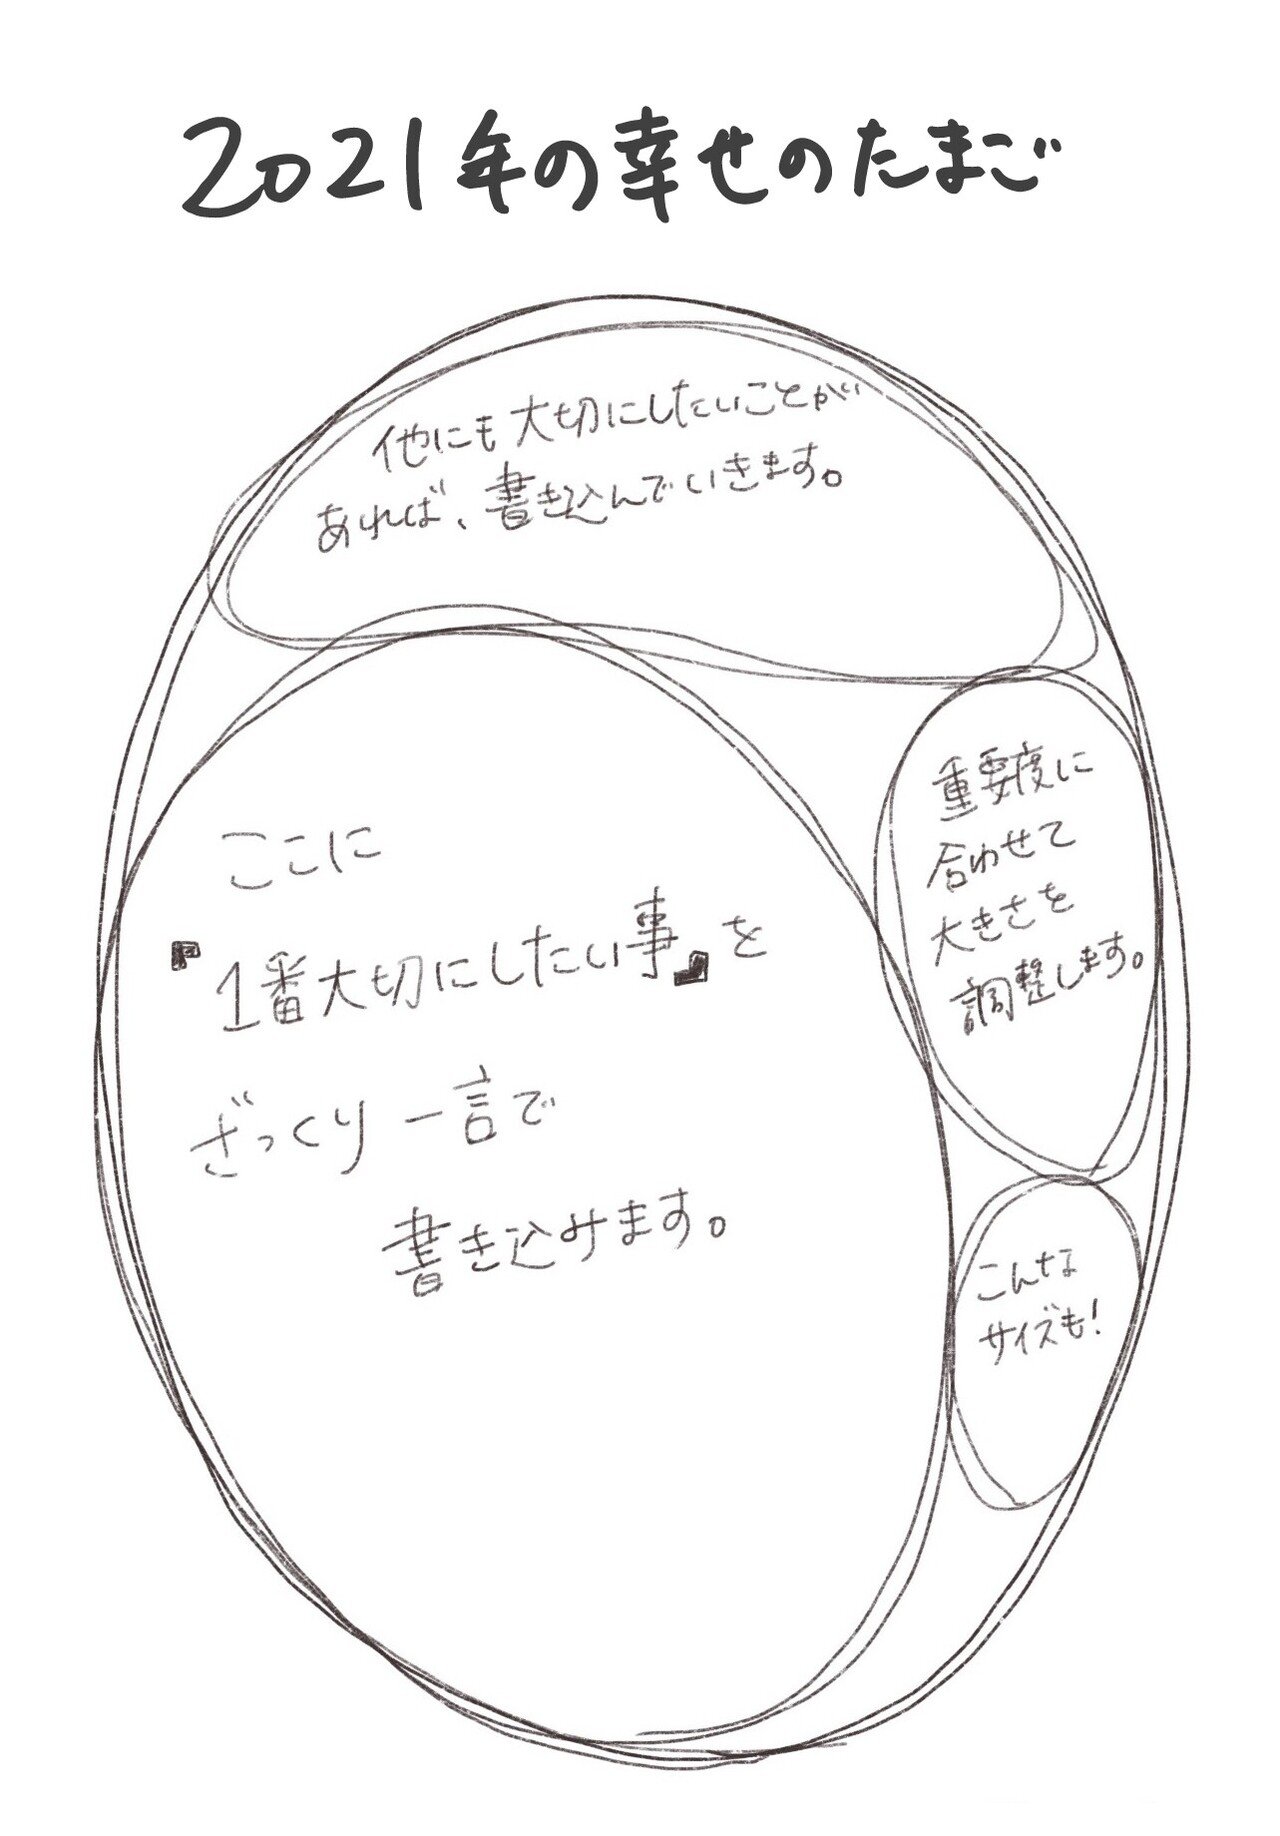 2021年の幸せのたまご
他にも大切にしたいことが
あれば、書き込んでいきます。
ここに
『1番大切にしたい事』を
ざっくり一言で
書き込みます。
重要度に
合わせて
大きさを
調整します。
こんな
サイズも!